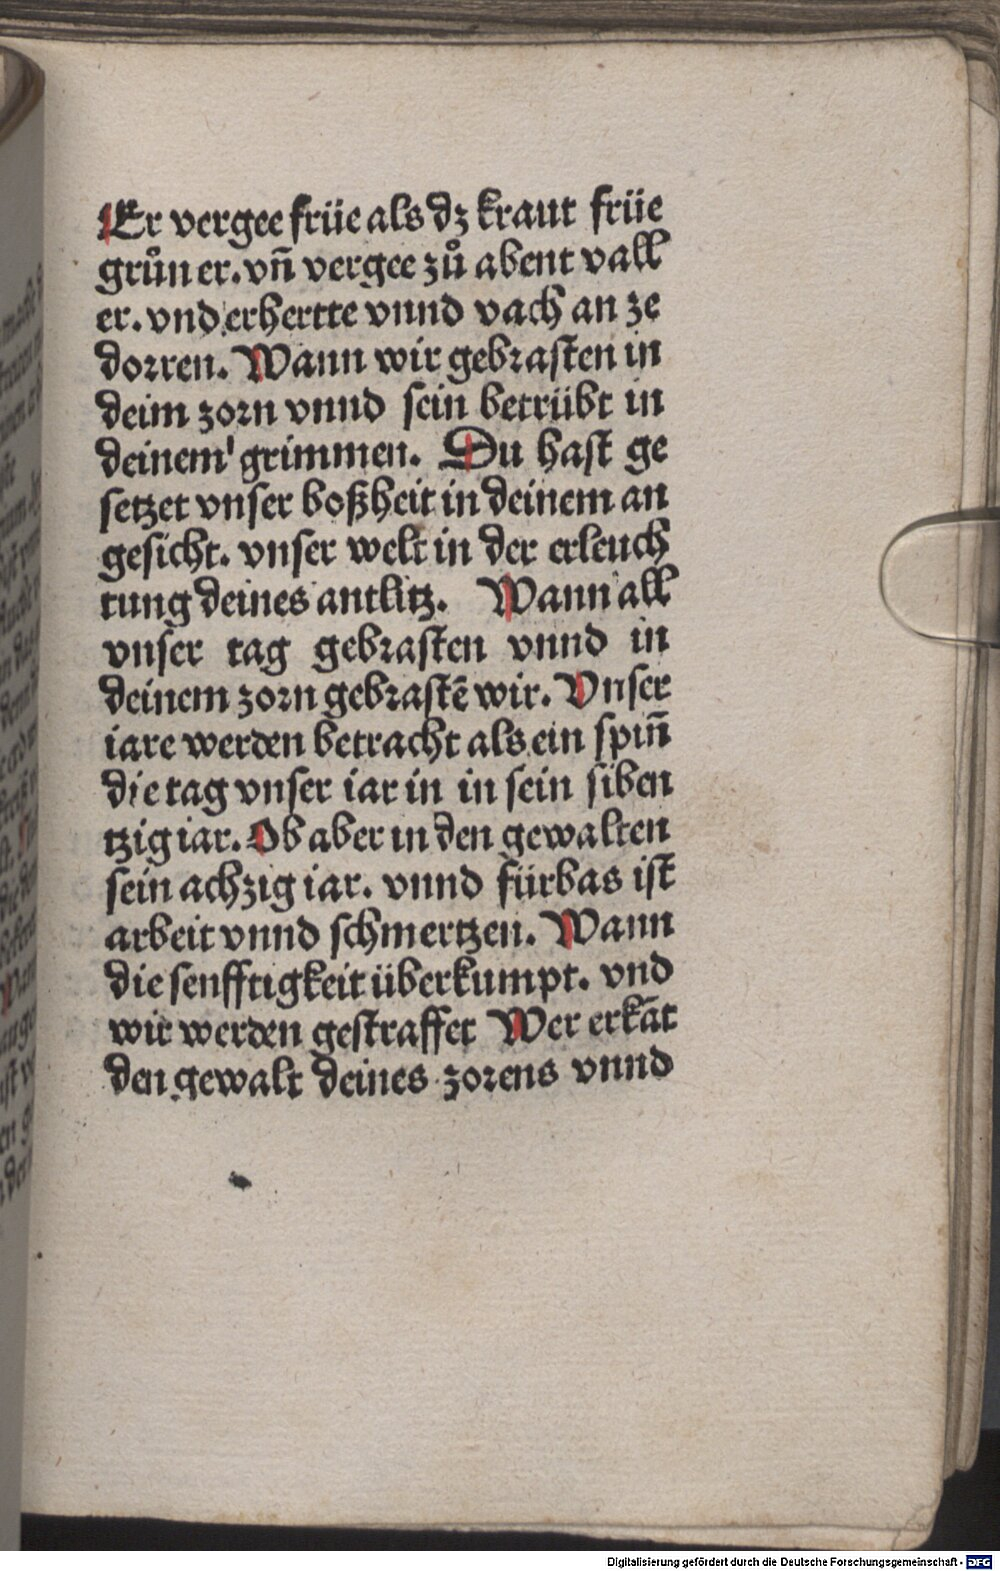 Er vergee früe als dz kraut früe
grůn er. vñ vergee zů abent vall
er. vnd erhertte vnnd vach an ze
dorren. Wann wir gebrasten in
deim zorn vnnd sein betrübt in
deinem grimmen. Du hast ge
setzet vnser boßheit in deinem an
gesicht. vnser welt in der erleuch
tung deines antlitz. Wann all
vnser tag gebrasten vnnd in
deinem zorn gebrastē wir. Vnser
iare werden betracht als ein spiñ
die tag vnser iar in in sein siben
tzig iar. Ob aber in den gewalten
sein achzig iar. vnnd fürbas ist
arbeit vnnd schmertzen. Wann
die senfftigkeit überkumpt. vnd
wir werden gestraffet Wer erkāt
den gewalt deines zorens vnnd
Digitalisierung gefördert durch die Deutsche Forschungsgemeinschaft - DFG